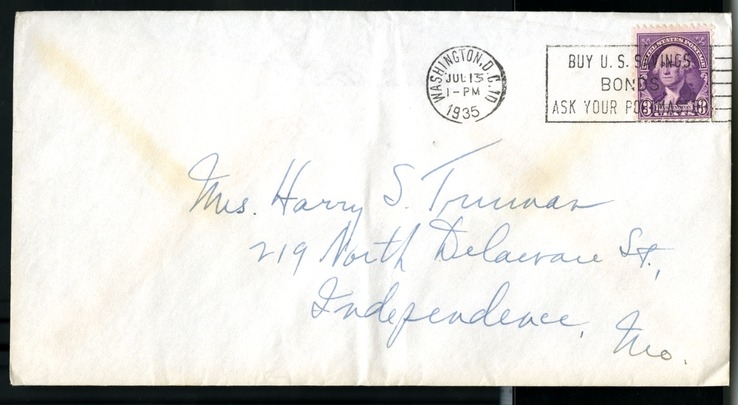 WASHINGTON, D.C. 10
JUL 13
1-PM
1935
BUY U.S. SAVINGS
BONDS
ASK YOUR POSTMASTER
UNITED STATES POSTAGE
3 3
Mrs. Harry S. Truman
219 North Delaware St.,
Independence, Mo.